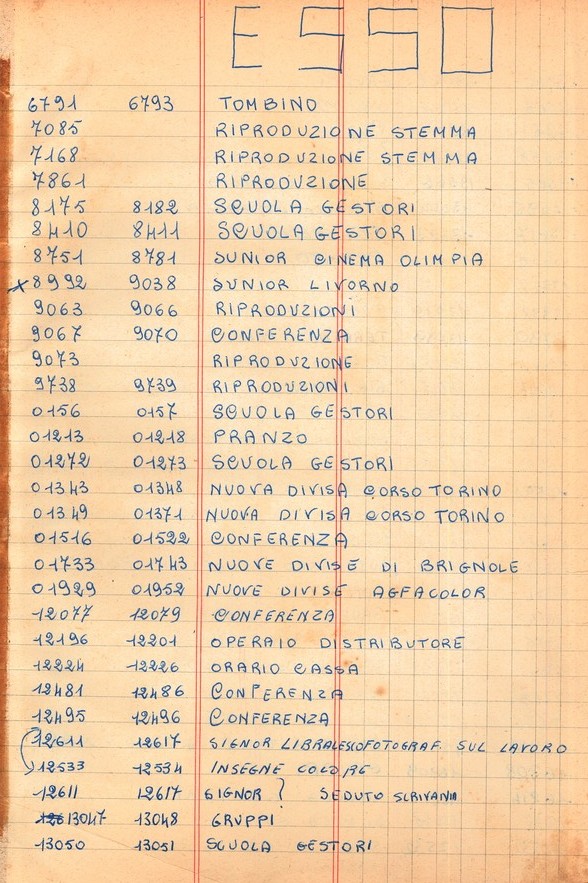 ESSO
6791 6793 TOMBINO
7085 RIPRODUZIONE STEMMA
7168 RIPRODUZIONE STEMMA
7861 RIPRODUZIONE
8175 8182 SCUOLA GESTORI
8410 8411 SCUOLA GESTORI
8751 8781 JUNIOR CINEMA OLIMPIA
x 8992 9038 JUNIOR LIVORNO
9063 9066 RIPRODUZIONI
9067 9070 CONFERENZA
9073 RIPRODUZIONE
9738 9739 RIPRODUZIONI
0156 0157 SCUOLA GESTORI
01213 01218 PRANZO
01272 01273 SCUOLA GESTORI
01343 01348 NUOVA DIVISA CORSO TORINO
01349 01371 NUOVA DIVISA CORSO TORINO
01516 01522 CONFERENZA
01733 01743 NUOVE DIVISE DI BRIGNOLE
01929 01952 NUOVE DIVISE AGFACOLOR
12077 12079 CONFERENZA
12196 12201 OPERAIO DISTRIBUTORE
12224 12226 ORARIO CASSA
12481 12486 CONFERENZA
12495 12496 CONFERENZA
12611 12617 SIGNOR FOTOGRAF. SUL LAVORO
12533 12534 INSEGNE COLORE
12611 12617 SIGNOR ? SEDUTO SCRIVANIA
13047 13048 GRUPPI
13050 13051 SCUOLA GESTORI